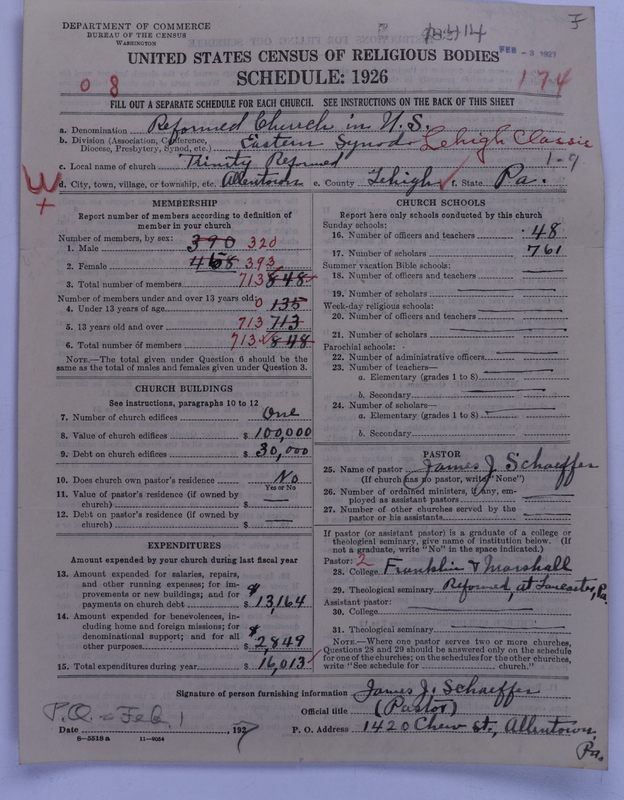 DEPARTMENT OF COMMERCE
BUREAU OF THE CENSUS
WASHINGTON
F
FEB -3 1927
UNITED STATES CENSUS OF RELIGIOUS BODIES
SCHEDULE: 1926
0 8
174
FILL OUT A SEPARATE SCHEDULE FOR EACH CHURCH. SEE INSTRUCTIONS ON THE BACK OF THIS SHEET
a. Denomination Reformed Church in U.S.
b. Division (Association, Conference, Diocese, Presbytery, Synod, etc.) Eastern Synod Lehigh Classis
c. Local name of church Trinity Reformed 1-9
d. City, town, village, or township, etc. Allentown e. County Lehigh f. State Pa.
MEMBERSHIP
Report number of members according to definition of
member in your church
Number of members, by sex:
1. Male 390 320
2. Female 458 393
3. Total number of members 713 848
Number of members under and over 13 years old:
4. Under 13 years of age 0 135
5. 13 years old and over 713 713
6. Total number of members 713 848
NOTE.—The total given under Question 6 should be
same as the total of males and females given under Question 3.
CHURCH BUILDINGS
See instructions, paragraphs 10 to 12
7. Number of church edifices One
8. Value of church edifices $ 100,000
9. Debt on church edifices $ 30,000
10. Does church own pastor's residence No
Yes or No
11. Value of pastor's residence (if owned by
church) $
12. Debt on pastor's residence (if owned by
church) $
EXPENDITURES
Amount expended by your church during last fiscal year
13. Amount expended for salaries, repairs,
and other running expenses; for im-
provements or new buildings; and for
payments on church debt $ 13,164
14. Amount expended for benevolences, in-
cluding home and foreign missions; for
denominational support; and for all
other purposes $ 2,849
15. Total expenditures during year $ 16,013
CHURCH SCHOOLS
Report here only schools conducted by this church
Sunday schools:
16. Number of officers and teachers 48
17. Number of scholars 761
Summer vacation Bible schools:
18. Number of officers and teachers
19. Number of scholars
Week-day religious schools:
20. Number of officers and teachers
21. Number of scholars
Parochial schools:
22. Number of administrative officers
23. Number of teachers—
a. Elementary (grades 1 to 8)
b. Secondary
24. Number of scholars—
a. Elementary (grades 1 to 8)
b. Secondary
PASTOR
25. Name of pastor James J. Schaeffer
(If church has no pastor, write "None")
26. Number of ordained ministers, if any, em-
ployed as assistant pastors
27. Number of other churches served by the
pastor or his assistants
If pastor (or assistant pastor) is a graduate of a college or
theological seminary, give name of institution below. (If
not a graduate, write "No" in the space indicated.)
Pastor: 2
28. College Franklin & Marshall
29. Theological seminary Reformed, at Lancaster, Pa.
Assistant pastor:
30. College
31. Theological seminary
NOTE.—Where one pastor serves two or more churches,
Questions 28 and 29 should be answered only on the schedule
for one of the churches; on the schedules for the other churches,
write "See schedule for church."
Signature of person furnishing information James J. Schaeffer
Official title (Pastor)
P.O. = Feb. 1
Date , 1927 P. O. Address 1420 Chew St., Allentown, Pa.
8-5518 a 11-9064